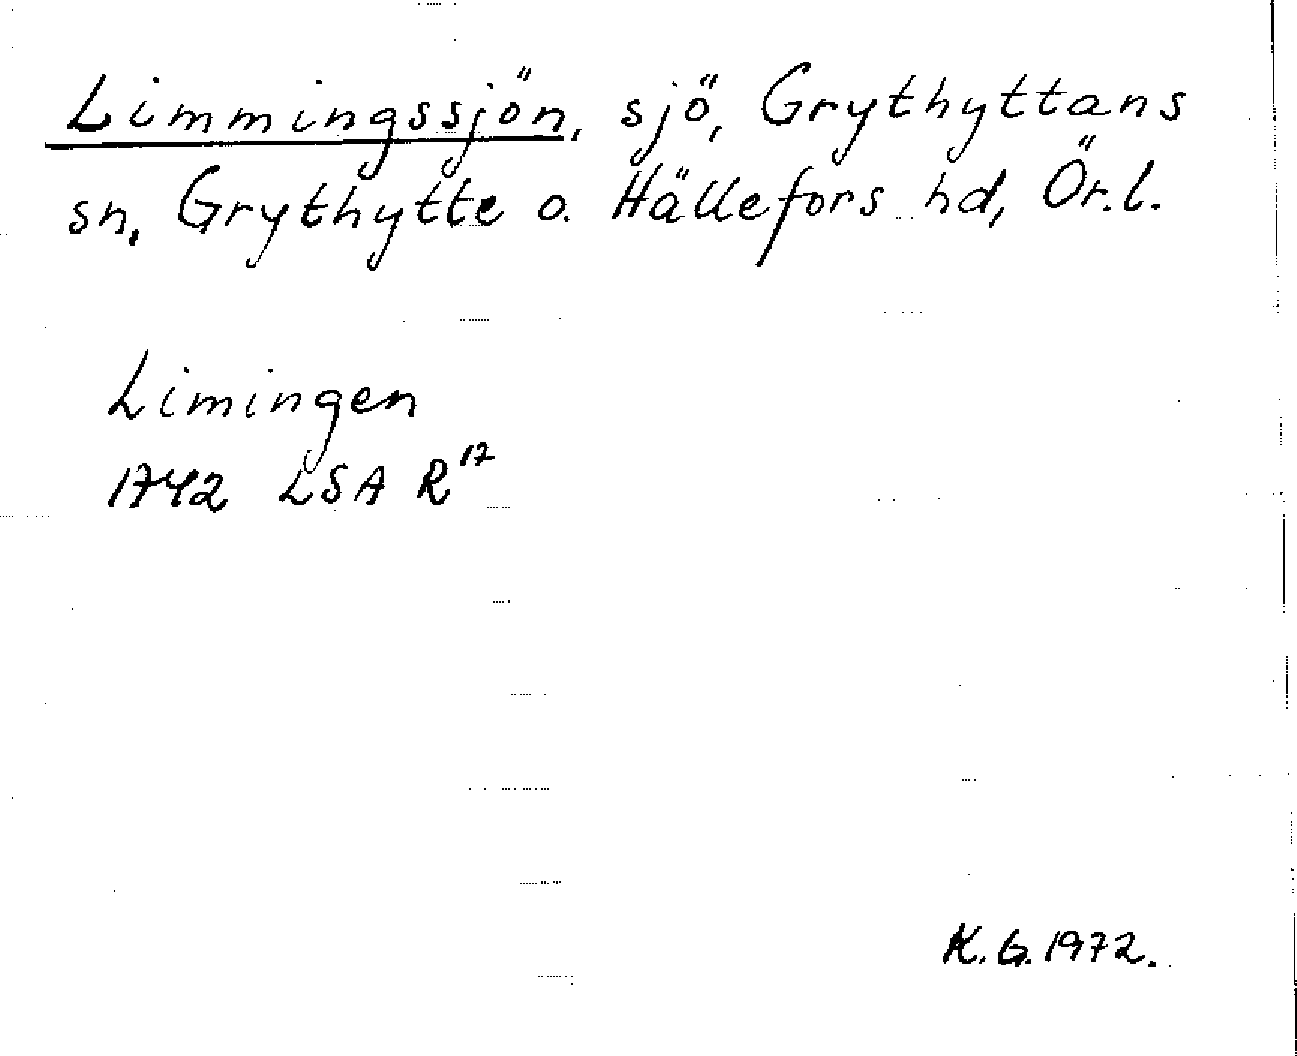 Limmingssjön, sjö, Grythyttans
sn, Grythytte o. Hällefors hd, Ör.l.
Limingen
1742 LSA R17
K.G. 1972.